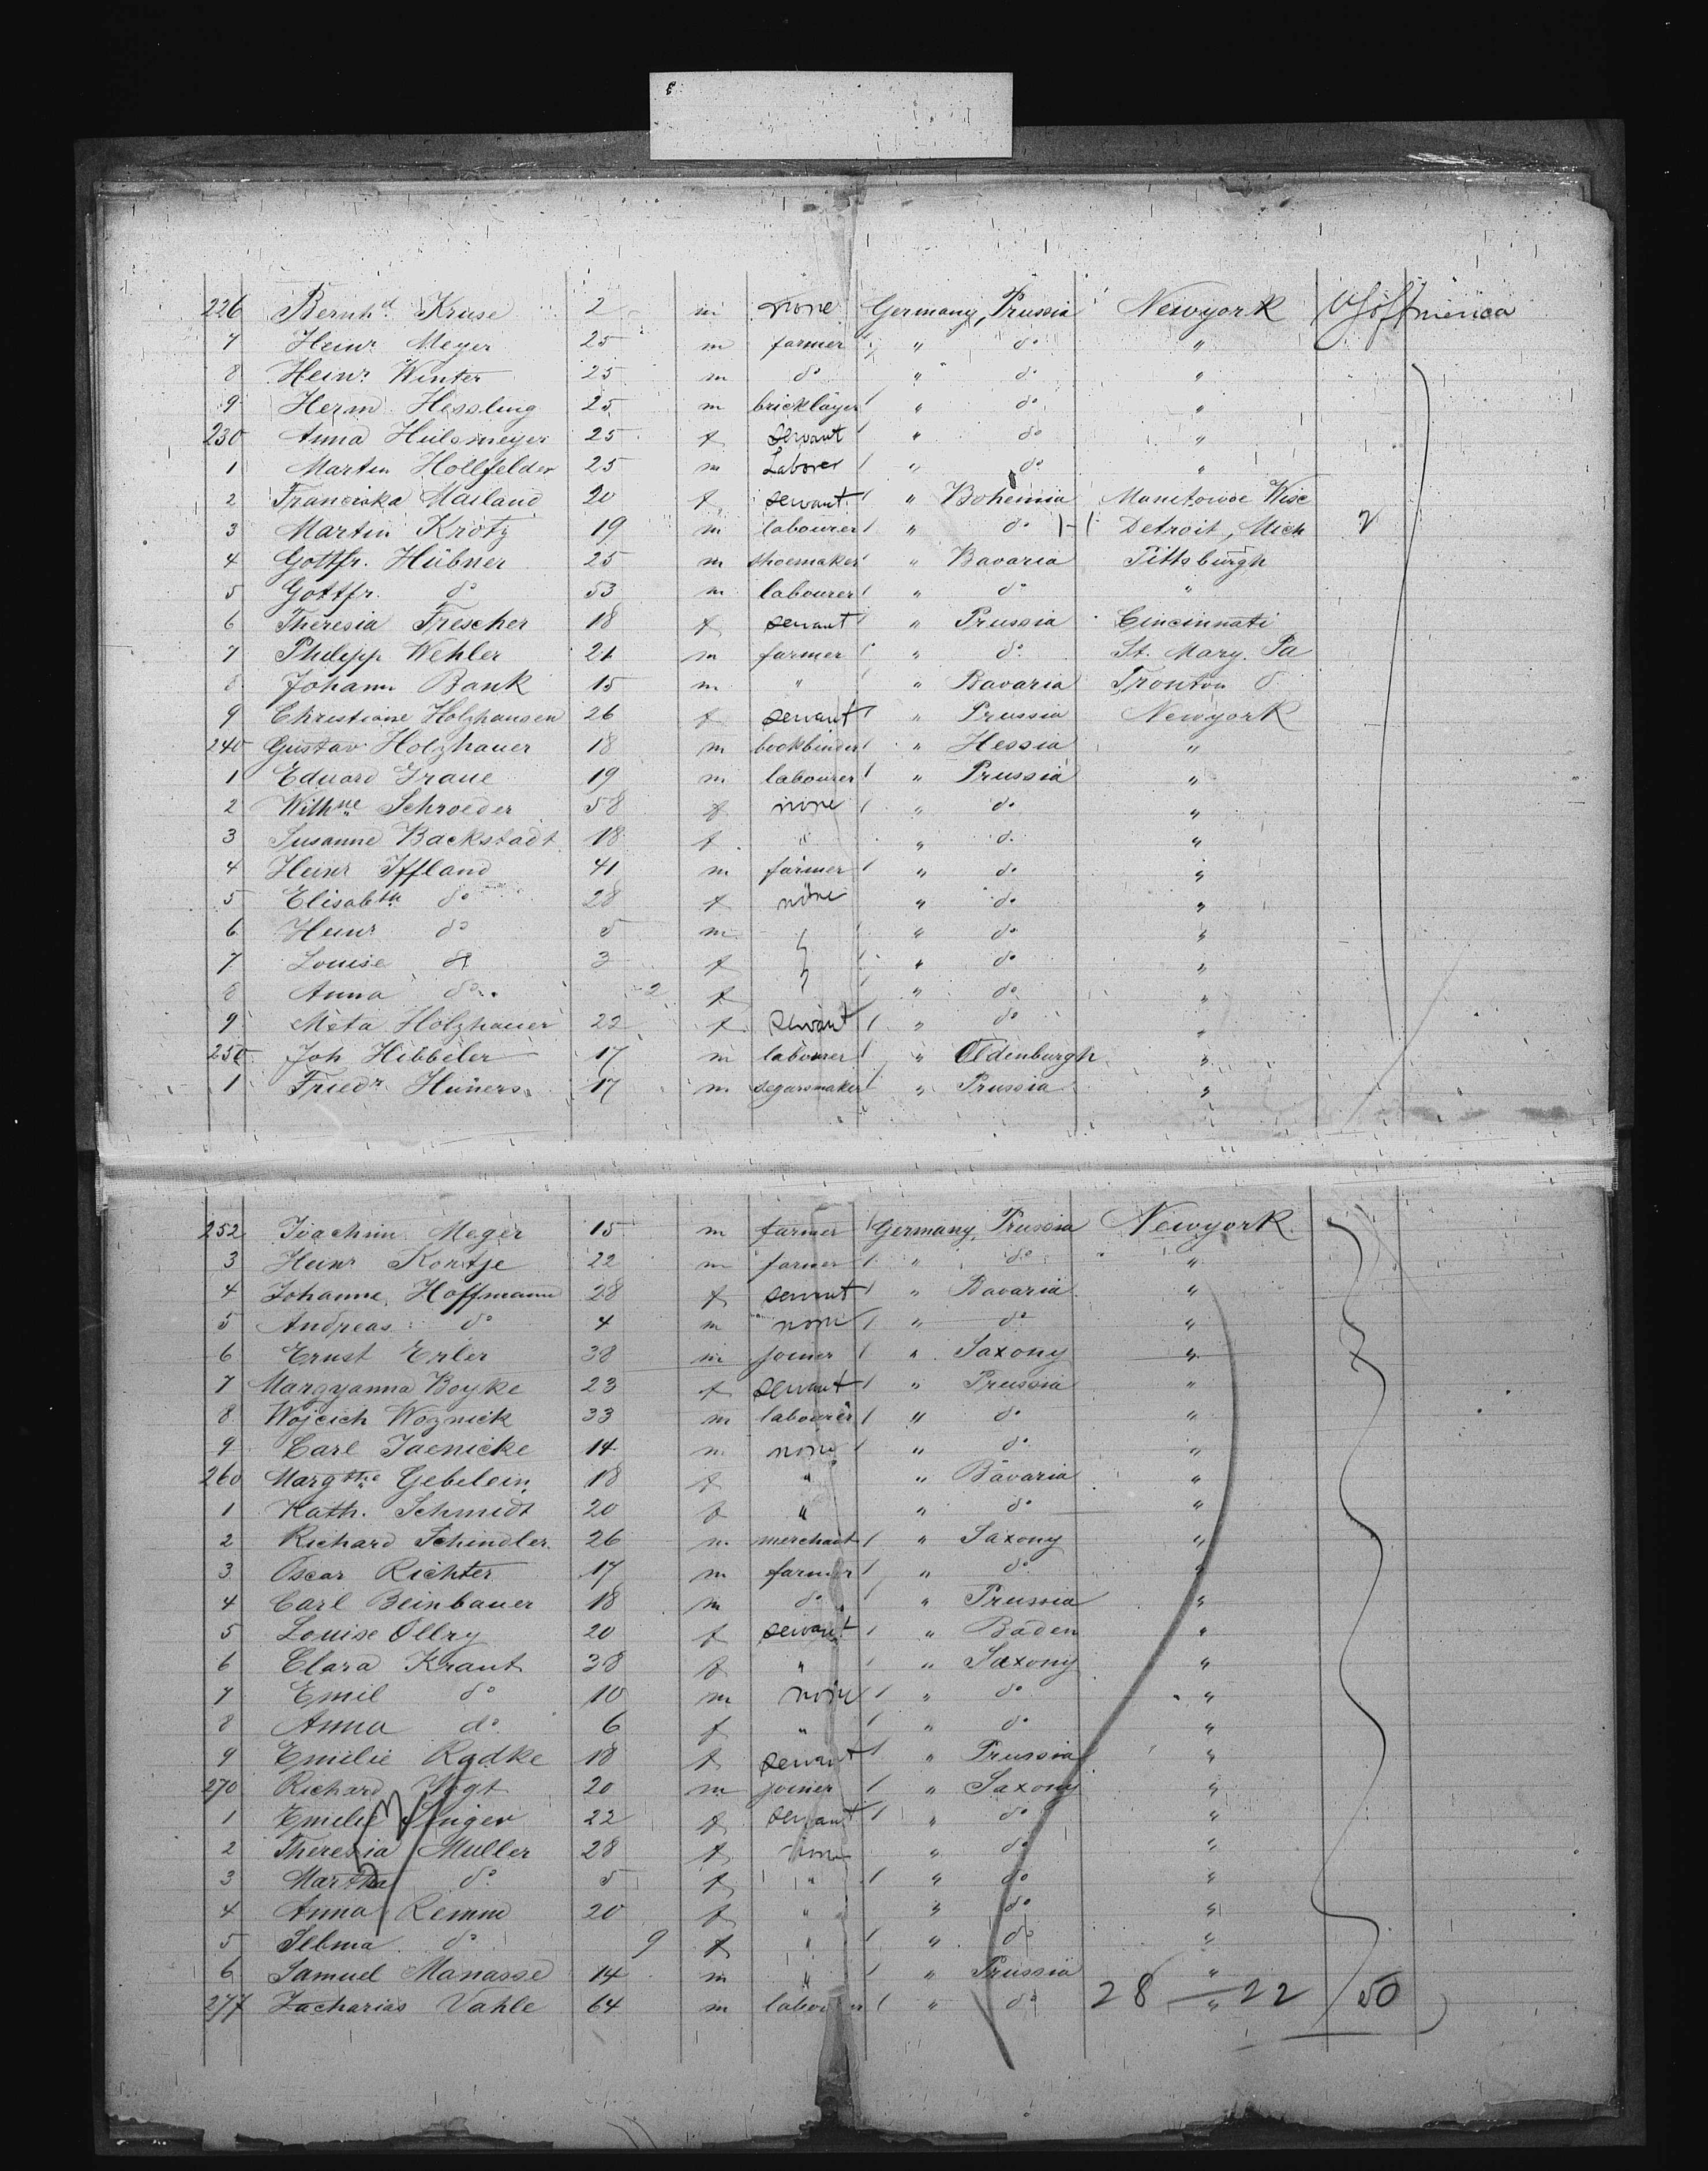 226 Bernhd Kruse 2 m none Germany, Prussia Newyork U S of America
7 Heinr Meyer 25 m farmer / " do "
8 Heinr Winter 25 m do " do "
9 Herm Hessling 25 m bricklayer / " do "
230 Anna Hülsmeyer 25 f servant / " do "
1 Martin Hollfelder 25 m Laborer / " do "
2 Franciska Mailand 20 f servant / " Bohemia Manitowoc Wisc
3 Martin Krotz 19 m labourer / " do Detroit, Mich
4 Gottfr. Hübner 25 m shoemaker / " Bavaria Pittsburgh
5 Gottfr. do 53 m labourer / " do "
6 Theresia Frescher 18 f servant / " Prussia Cincinnati
7 Philipp Wehler 21 m farmer / " do St. Mary. Pa
8 Johann Bank 15 m " / " Bavaria Ironton O
9 Christiane Holzhausen 26 f servant / " Prussia Newyork
240 Gustav Holzhauer 18 m bookbinder / " Hessia "
1 Eduard Graue 19 m labourer / " Prussia "
2 Wilhne Schroeder 58 f none / " do "
3 Susanne Backstadt 18 f " " do "
4 Heinr Iffland 41 m farmer / " do "
5 Elisabth do 28 f none " do "
6 Heinr do 5 m " do "
7 Louise do 3 f / " do "
8 Anna do 2 f / " do "
9 Meta Holzhauer 22 f servant / " do "
250 Joh Hibbeler 17 m labourer / " Oldenburgh "
1 Friedr Hüners 17 m segarsmaker / " Prussia "
252 Joachim Meger 15 m farmer / Germany, Prussia Newyork
3 Heinr Kortje 22 m farmer / " do "
4 Johanne Hoffmann 28 f servant / " Bavaria "
5 Andreas do 4 m none / " do "
6 Ernst Erler 38 m joiner / " Saxony "
7 Margyanna Boyke 23 f servant / " Prussia "
8 Wojcich Woznick 33 m labourer / " do "
9 Carl Jaenicke 14 m none / " do "
260 Margthe Gebelein 18 f " " Bavaria "
1 Kath. Schmidt 20 f " " do "
2 Richard Schindler 26 m merchant / " Saxony "
3 Oscar Richter 17 m farmer / " do "
4 Carl Beinbauer 18 m do / " Prussia "
5 Louise Ollry 20 f servant / " Baden "
6 Clara Kraut 38 f " / " Saxony "
7 Emil do 10 m none / " do "
8 Anna do 6 f " / " do "
9 Emilie Radke 18 f servant / " Prussia "
270 Richard Vogt 20 m joiner / " Saxony "
1 Emilie Singer 22 f servant / " do "
2 Theresia Muller 28 f none " do "
3 Martha do 5 f " / " do "
4 Anna Remm 20 f " " do "
5 Selma do 9 f " / " do "
6 Samuel Manasse 14 m " / " Prussia "
277 Zacharias Vahle 64 m labourer / " do "
28 — 22 / 50